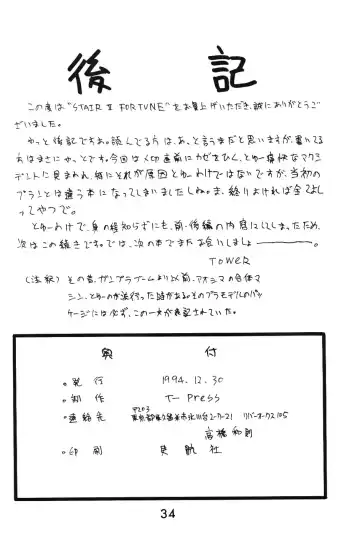 後記
この度は"STAIR Ⅱ FORTUNE"をお買上げいただき、誠にありがとうご
ざいました。
やっと後記ですぁ。読んでる方は、あっと言うまだと思いますが、書いてる
方はまさにやっとです。今回は〆切直前にカゼをひく、とゆー痛快なアクシ
デントに見まわれ、特にそれが原因とゆーわけではないですが、当初の
プランとは違う本になってしまいましたしね。ま、終りよければ全てよし
ってやつで。
とゆーわけで、身の程知らずにも、前・後編の内容にしてしまったため、
次はこの続きです。では、次の本でまたお会いしましょ―――。
TOWER
(注釈) その昔、ガンプラブームより以前、アオシマの合体マ
シン、とゆーのが流行った時がある。そのプラモデルのパッ
ケージには必ず、この一文が表記されていた。
奥付
。発行 1994.12.30
。制作 T- Press
。連絡先 〒203
東京都東久留米市氷川台2-7-21 リバーオークス105
高橋和則
。印刷
34